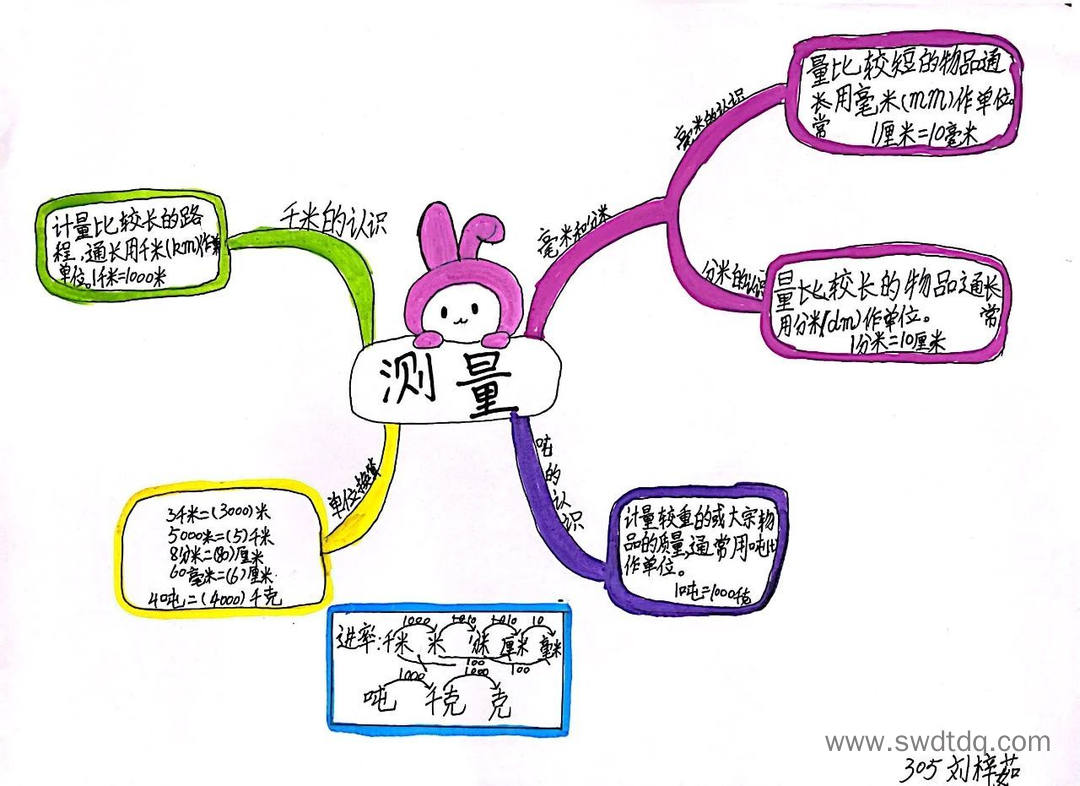 测量
千米的认识
计量比较长的路
程,通长用千米(km)作
单位。1千米=1000米
毫米和分米
毫米的认识
量比较短的物品通
长用毫米(mm)作单位。
常
1厘米=10毫米
分米的认识
量比较长的物品通长
用分米(dm)作单位。 常
1分米=10厘米
吨的认识
计量较重的或大宗物
品的质量,通常用吨t
作单位。
1吨=1000千克
单位换算
3千米=(3000)米
5000米=(5)千米
8分米=(80)厘米
60毫米=(6)厘米
4吨=(4000)千克
1000 10 10 10
进率:千米 米 分米 厘米 毫米
100 100
1000 1000
吨 千克 克
www.swdtdq.com
305 刘梓茹